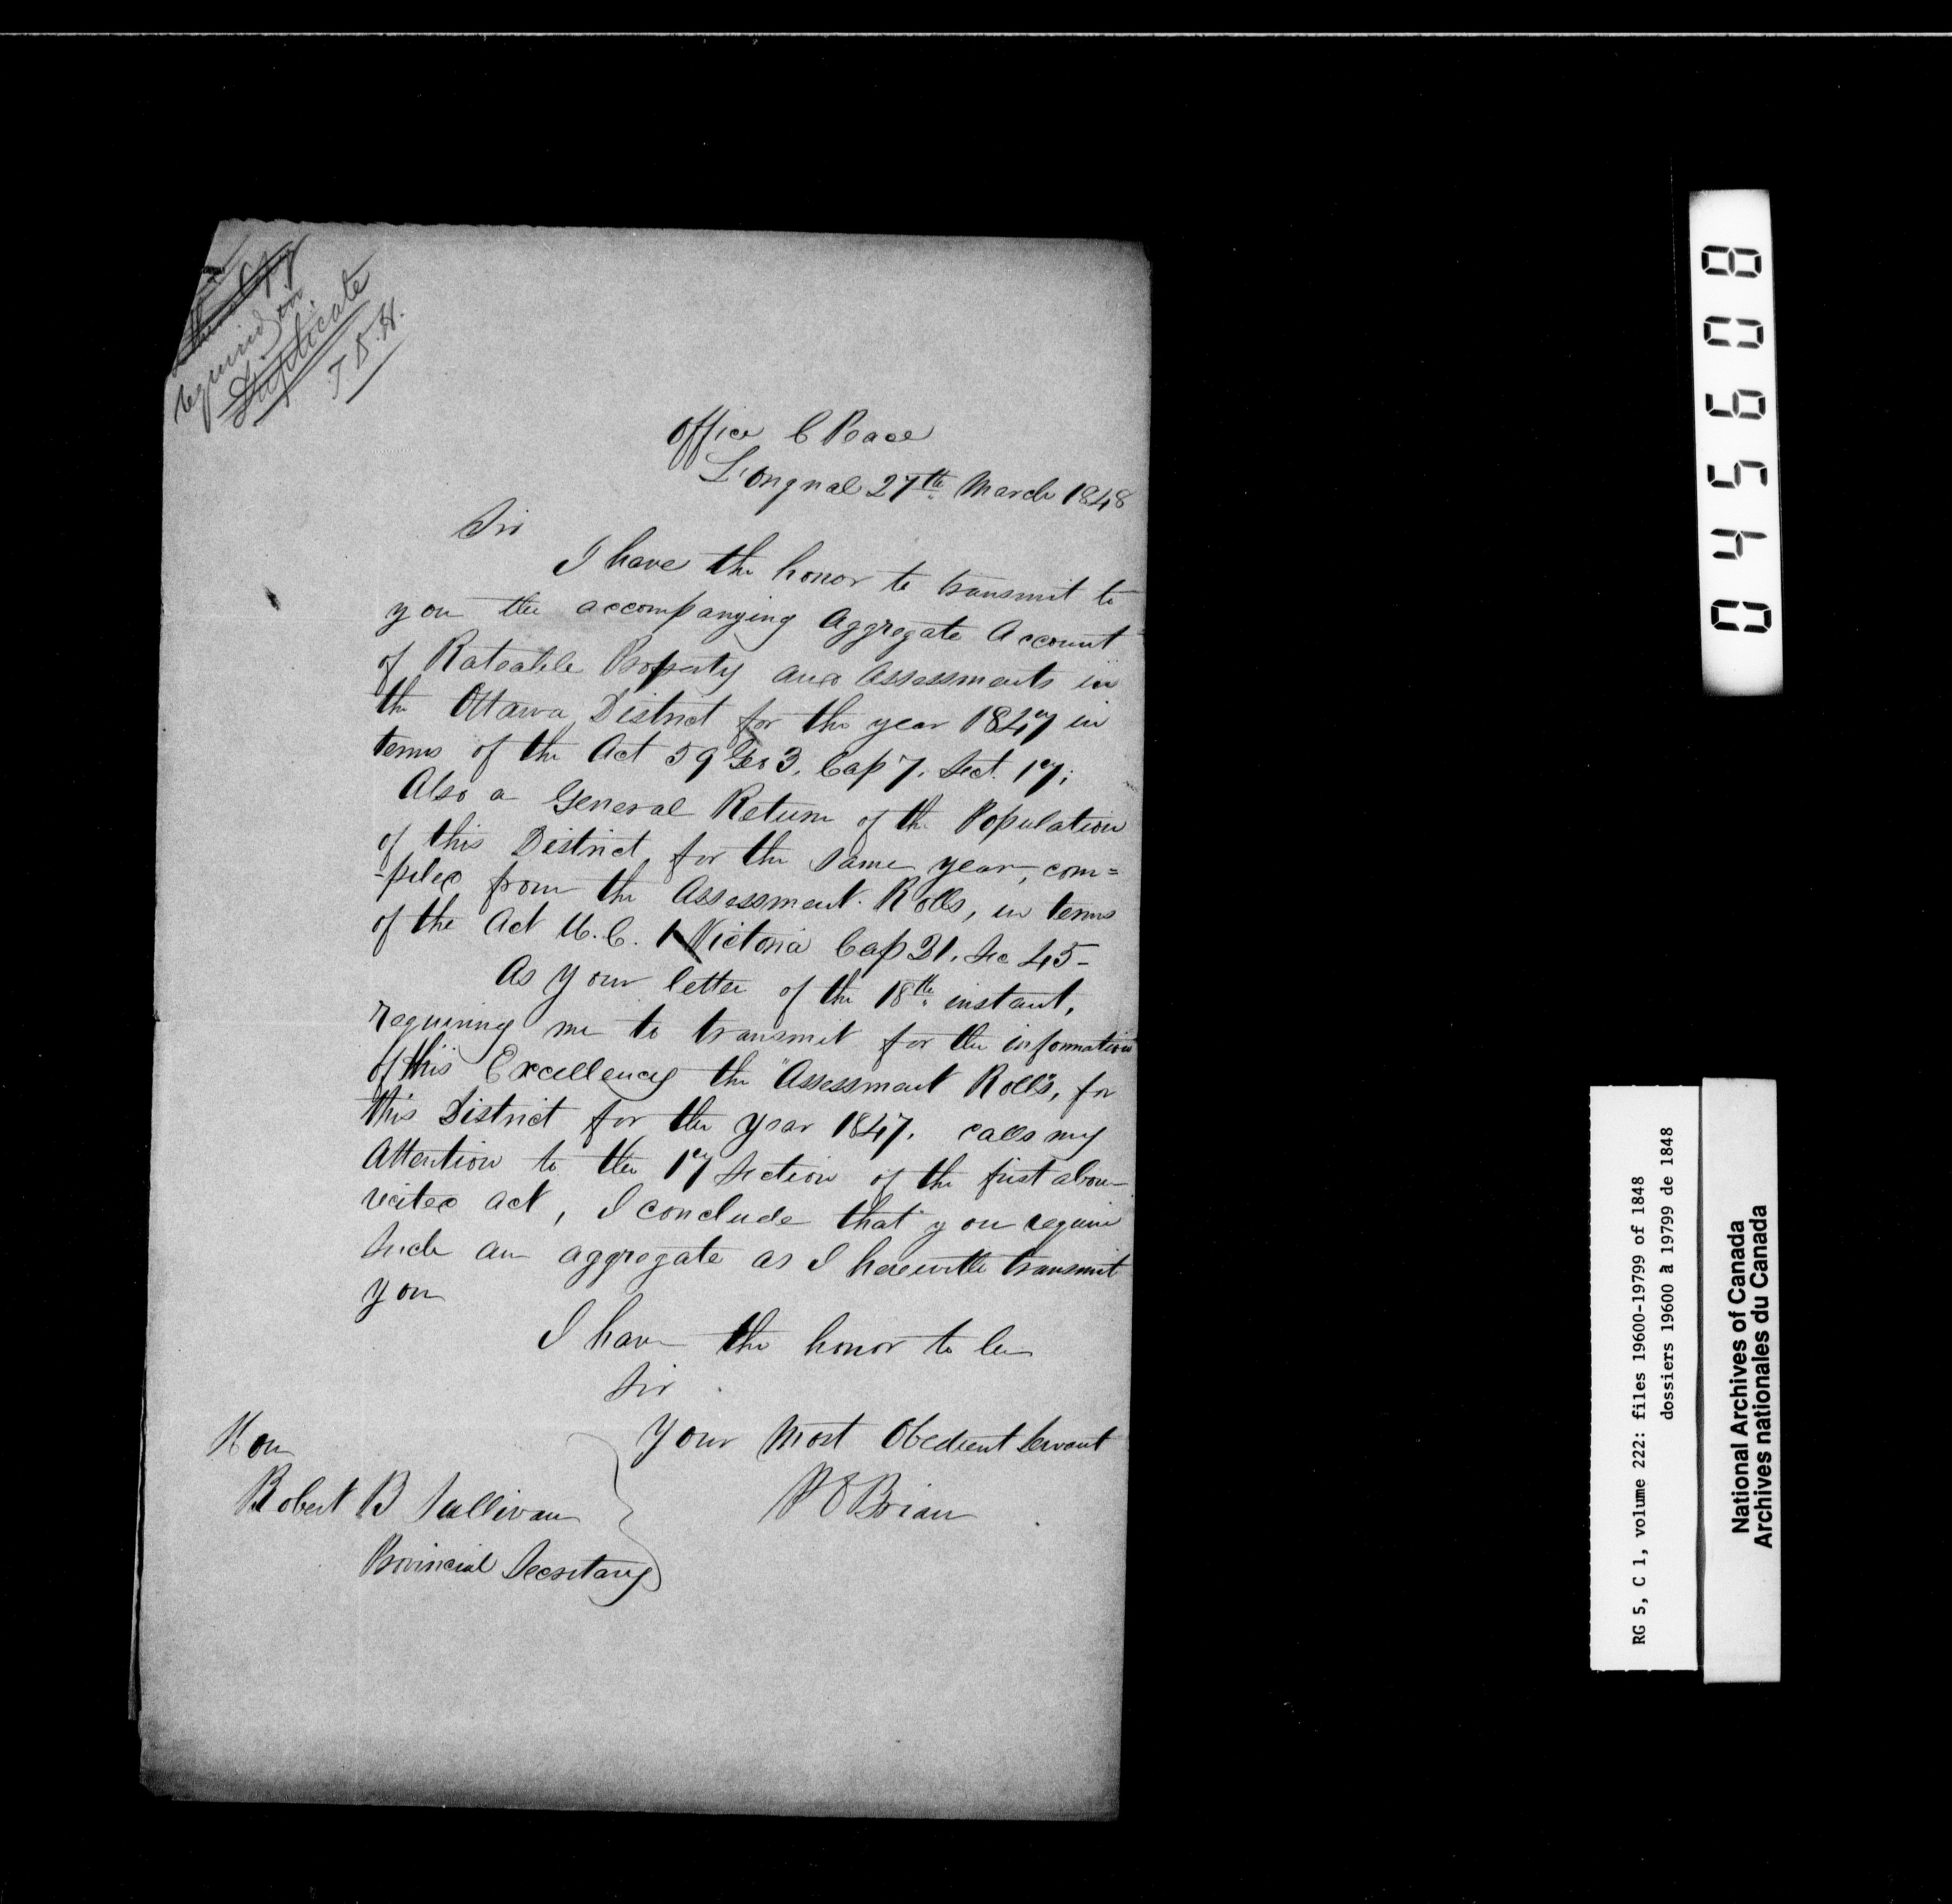 required in
Duplicate
Office C Peace
L'Orignal 27th March 1848
Sir
I have the honor to transmit to
you the accompanying Aggregate Account
of Rateable Property and Assessments in
the Ottawa District for the year 1847 in
terms of the Act 59 Geo 3. Cap 7. Sect. 17;
Also a General Return of the Population
of this District for the same year, com=
-piled from the Assessment Rolls, in terms
of the Act U.C. 1 Victoria Cap 21. Sec 45-
As your letter of the 18th instant,
requiring me to transmit for the information
of His Excellency the "Assessment Rolls", for
this District for the year 1847. calls my
Attention to the 17 Section of the first above
recited act, I conclude that you require
such an aggregate as I herewith transmit
you
I have the honor to be
Sir
Your Most Obedient Servant
Hon
Robert B Sullivan
Provincial Secretary
045608
RG 5, C 1, volume 222: files 19600-19799 of 1848
dossiers 19600 à 19799 de 1848
National Archives of Canada
Archives nationales du Canada